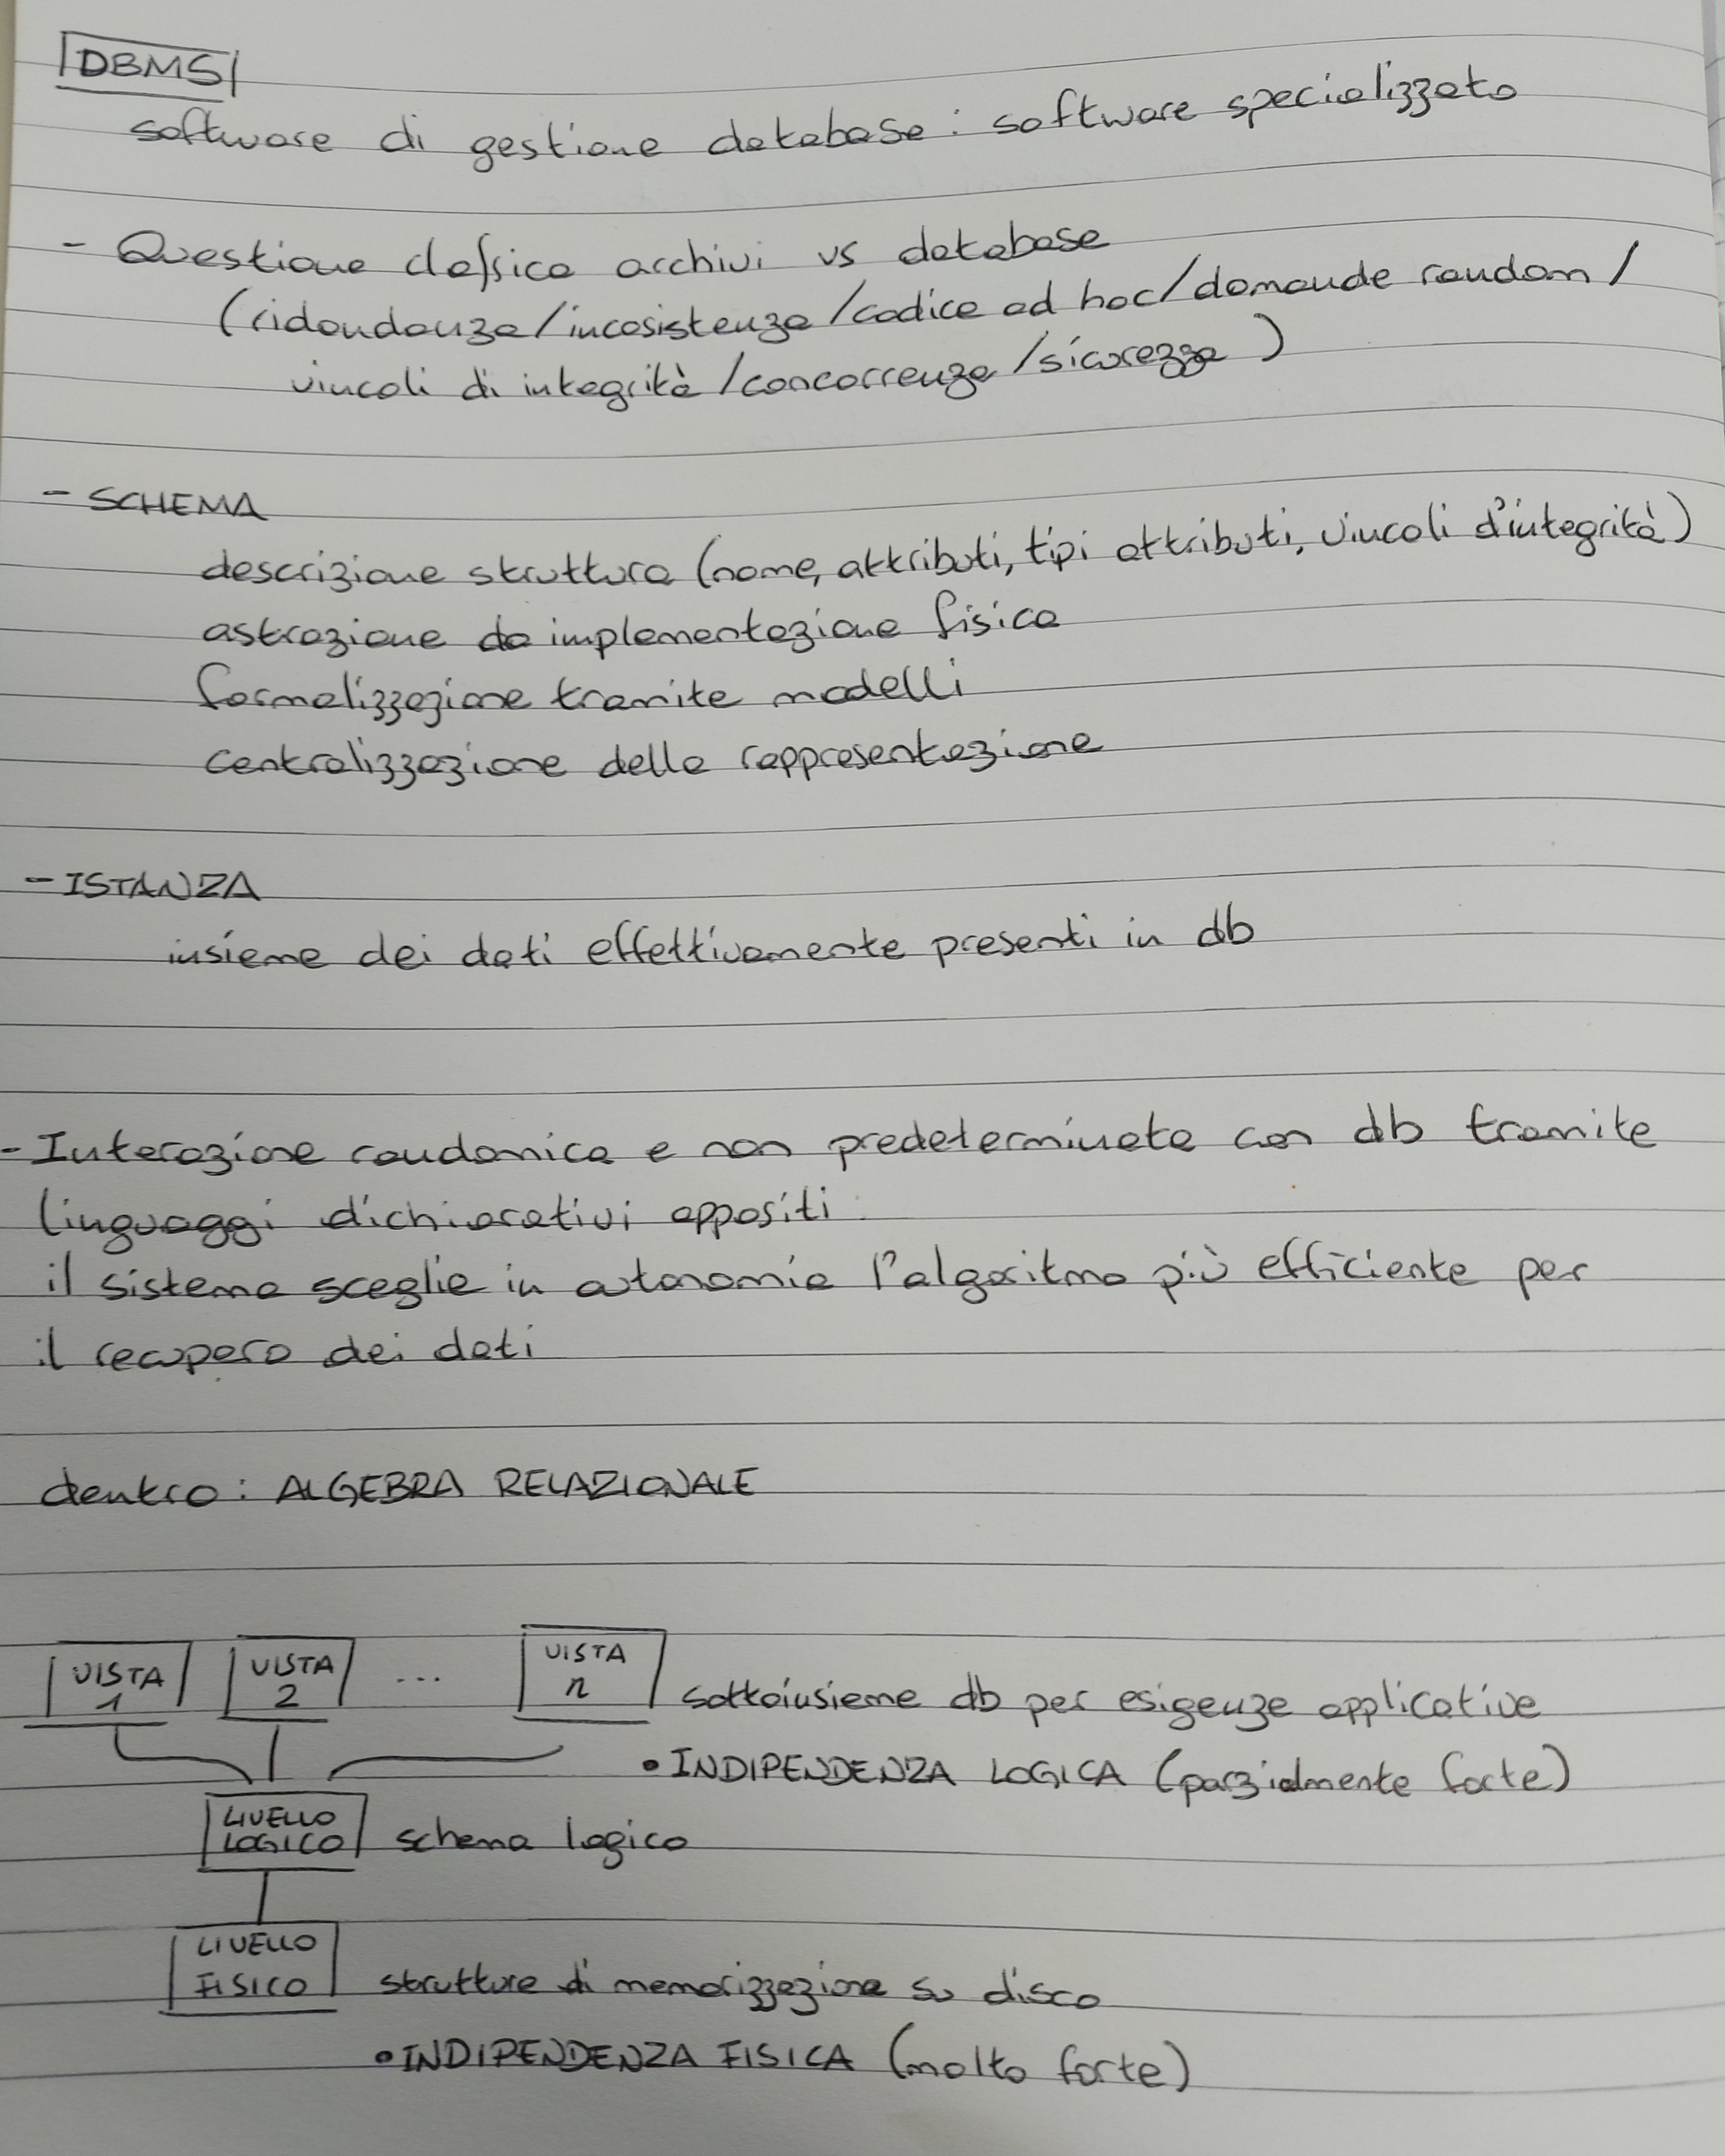 DBMS
software di gestione database : software specializzato
- Questione classica archivi vs database
(ridondanza/incosistenza/codice ad hoc/domande random/
vincoli di integrità/concorrenza/sicurezza)
- SCHEMA
descrizione struttura (nome, attributi, tipi attributi, vincoli d'integrità)
astrazione da implementazione fisica
formalizzazione tramite modelli
centralizzazione della rappresentazione
- ISTANZA
insieme dei dati effettivamente presenti in db
- Interazione randomica e non predeterminata con db tramite
linguaggi dichiarativi appositi
il sistema sceglie in autonomia l'algoritmo più efficiente per
il recupero dei dati
dentro : ALGEBRA RELAZIONALE
VISTA 1 VISTA 2 ... VISTA n sottoinsieme db per esigenze applicative
• INDIPENDENZA LOGICA (parzialmente forte)
LIVELLO LOGICO schema logico
LIVELLO FISICO strutture di memorizzazione su disco
• INDIPENDENZA FISICA (molto forte)